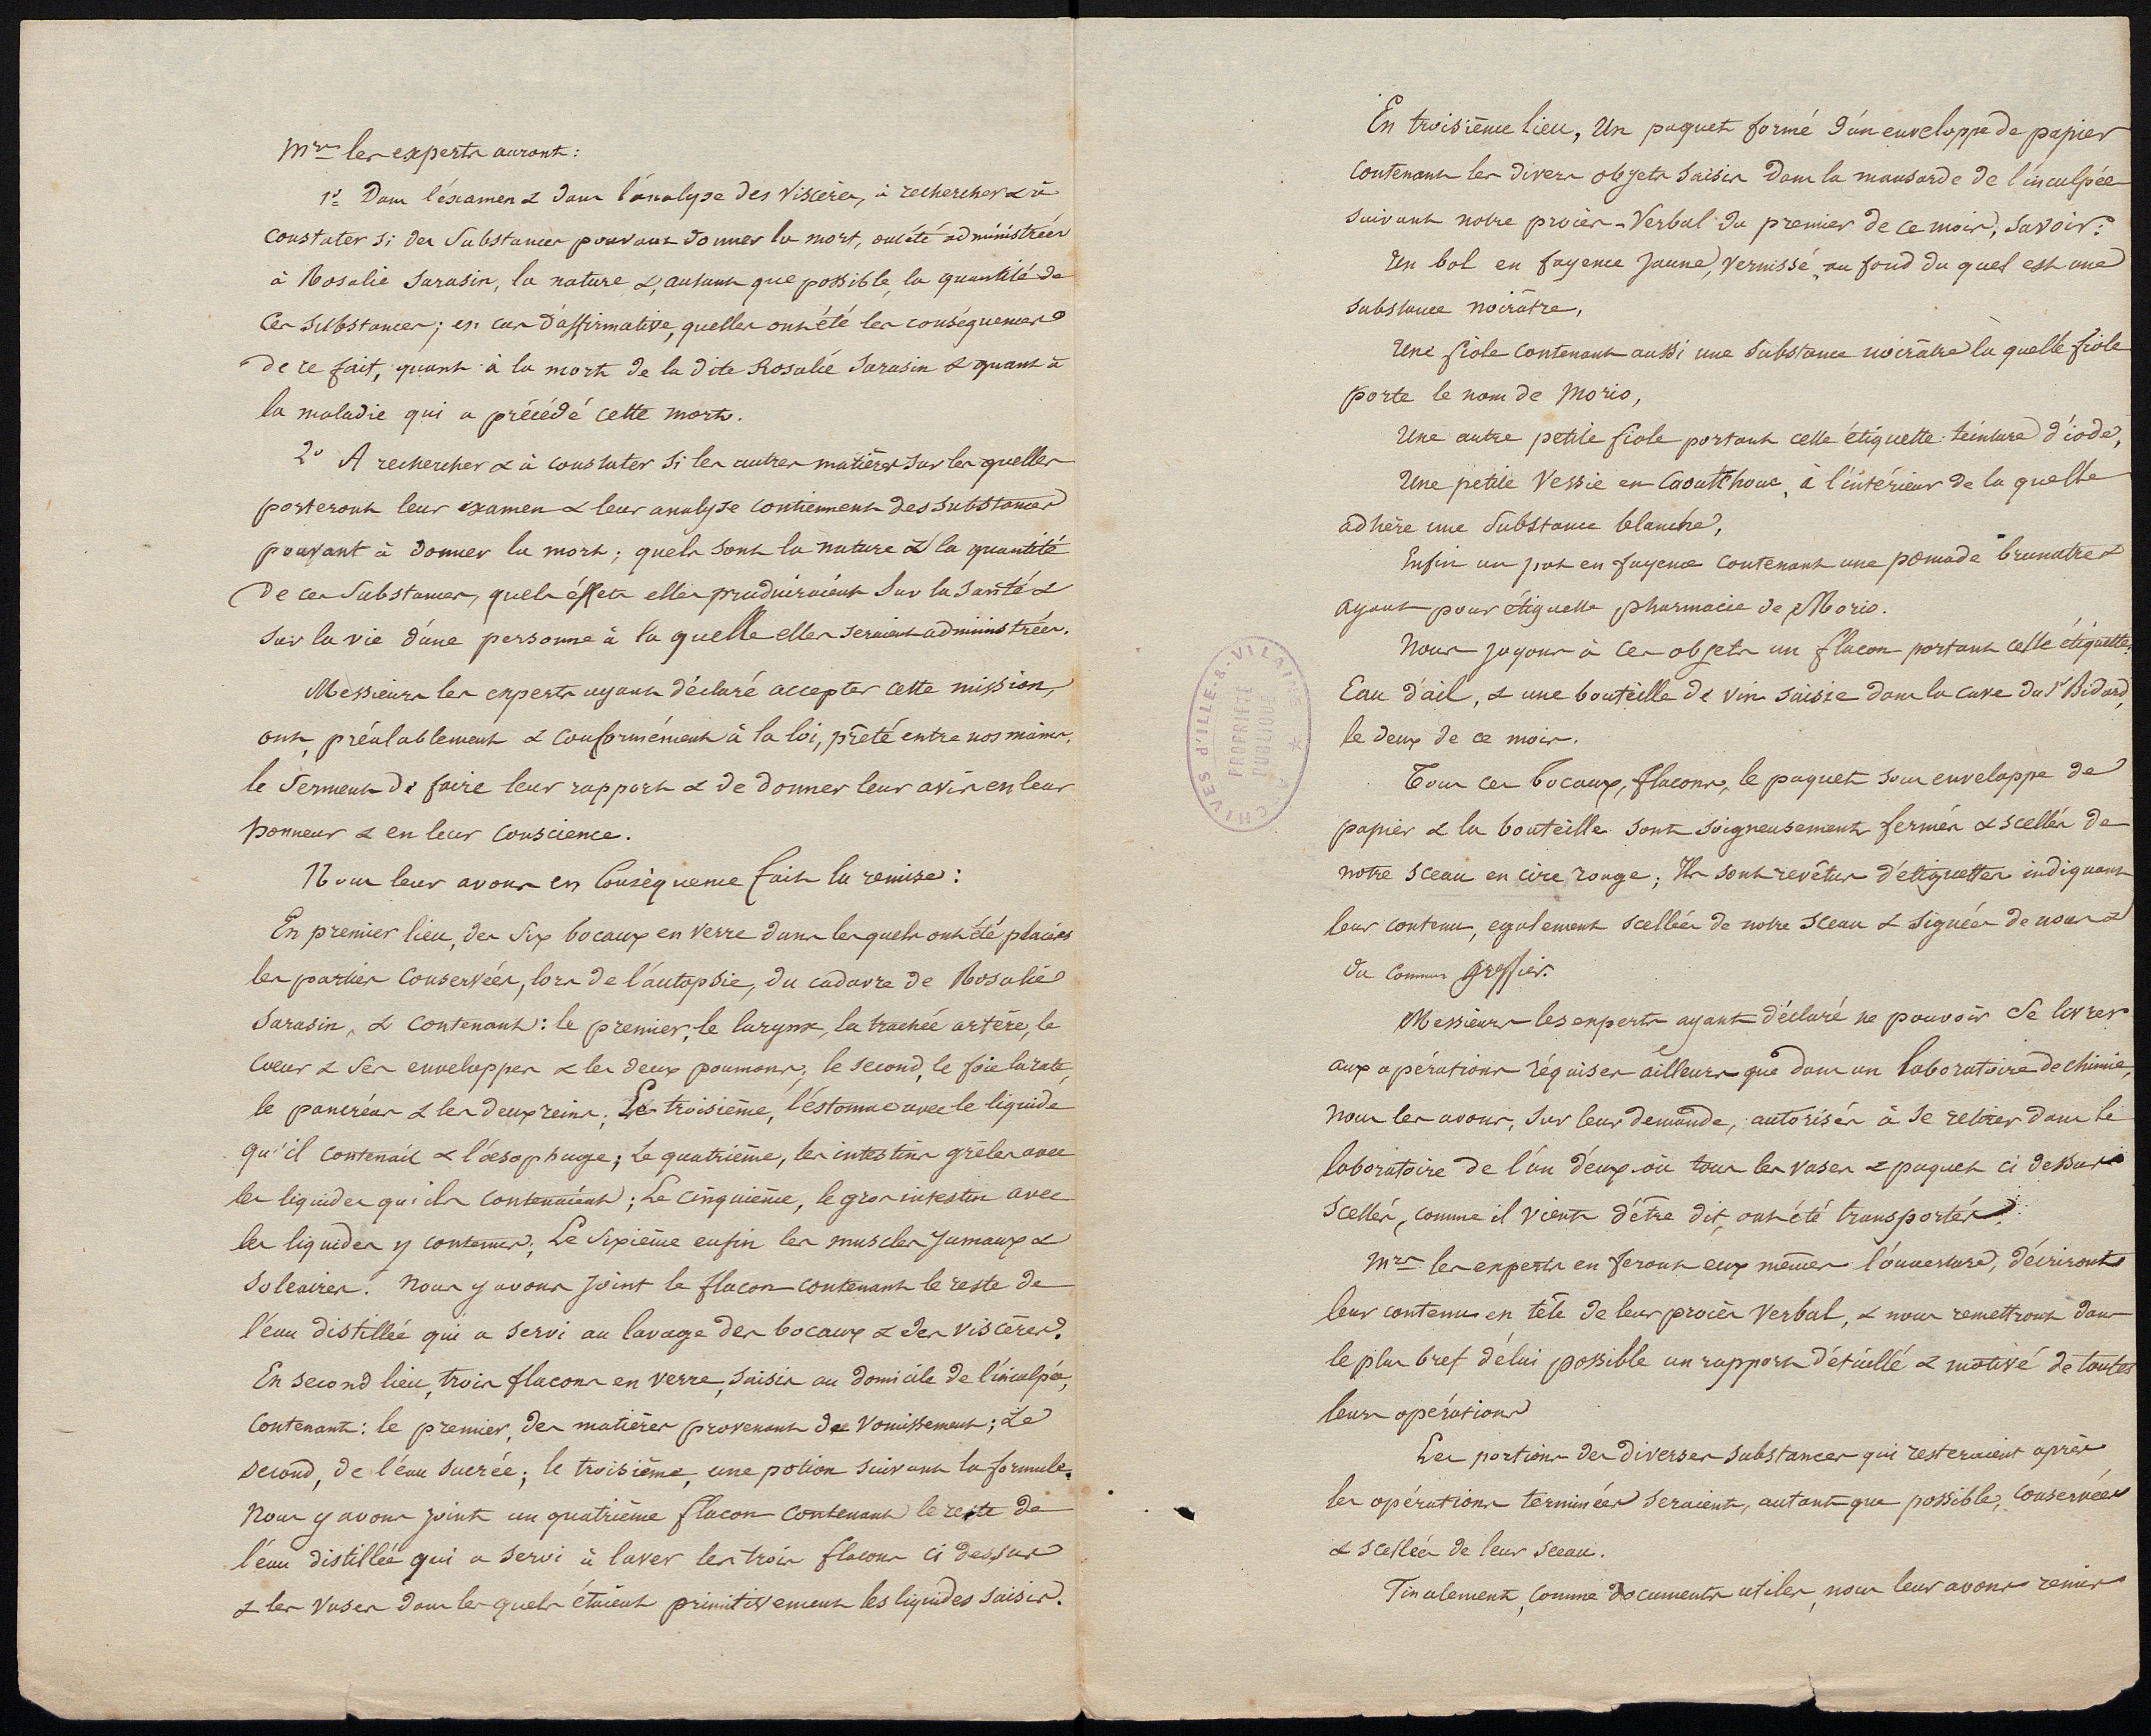 Mrs les experts auront:
1º Dans l'examen & dans l'analyse des viscères, à rechercher & à
constater si des substances pouvant donner la mort, ont été administrées
à Rosalie Sarasin, la nature &, autant que possible, la quantité de
ces substances; en cas d'affirmative, quelles ont été les conséquences
de ce fait, quant à la mort de la dite Rosalie Sarasin & quant à
la maladie qui a précédé cette mort.
2º A rechercher & à constater si les autres matières sur les quelles
porteront leur examen & leur analyse contiennent des substances
pouvant à donner la mort; quels sont la nature & la quantité
de ces substances, quels effets elles produiraient sur la santé &
sur la vie d'une personne à la quelle elles seraient administrées.
Messieurs les experts ayant déclaré accepter cette mission,
ont, préalablement & conformément à la loi, prêté entre nos mains,
le serment de faire leur rapport & de donner leur avis en leur
honneur & en leur conscience.
Nous leur avons en conséquence fait la remise:
En premier lieu, des six bocaux en verre dans les quels ont été placées
les parties conservées, lors de l'autopsie, du cadavre de Rosalie
Sarasin, & contenant: le premier, le larynx, la trachée artère, le
coeur & ses enveloppes & les deux poumons; le second, le foie la rate,
le pancréas & les deux reins; Le troisième, l'estomac avec le liquide
qu'il contenait & l'oesophage; Le quatrième, les intestins grêles avec
les liquides qu'ils contenaient; Le cinquième, le gros intestin avec
les liquides y contenus; Le sixième enfin les muscles jumeaux &
soleaires. Nous y avons joint le flacon contenant le reste de
l'eau distillée qui a servi au lavage des bocaux & des viscères.
En second lieu, trois flacons en verre, saisis au domicile de l'inculpée,
contenant: le premier, des matières provenant de vomissement; Le
second, de l'eau sucrée; le troisième, une potion suivant la formule.
Nous y avons joint un quatrième flacon contenant le reste de
l'eau distillée qui a servi à laver les trois flacons ci dessus
& les vases dans les quels étaient primitivement les liquides saisis.
En troisième lieu, Un paquet formé d'un enveloppe de papier
contenant les divers objets saisis dans la mansarde de l'inculpée
suivant notre procès-verbal du premier de ce mois, savoir:
Un bol en fayence jaune, vernissé, au fond du quel est une
substance noirâtre,
Une fiole contenant aussi une substance noirâtre la quelle fiole
porte le nom de Morio,
Une autre petite fiole portant cette étiquette: teinture d'iode,
Une petite vessie en caoutthouc, à l'intérieur de la quelle
adhère une substance blanche,
Enfin un pot en fayence contenant une pomade brunatre &
ayant pour étiquette pharmacie de Morio.
Nous joyons à ces objets un flacon portant cette étiquette:
Eau d'ail, & une bouteille de vin saisie dans la cave du Sr Bidard,
le deux de ce mois.
Tous ces bocaux, flacons, le paquet sous enveloppe de
papier & la bouteille sont soigneusement fermés & scellés de
notre sceau en cire rouge; Ils sont revêtus d'étiquettes indiquant
leur contenu, egalement scellées de notre sceau & signées de nous &
du commis greffier.
Messieurs les experts ayant déclaré ne pouvoir se livrer
aux opérations réquises ailleurs que dans un laboratoire de chimie,
nous les avons, sur leur demande, autorisés à se retirer dans le
laboratoire de l'un d'eux où tous les vases & paquet ci dessus
scellés, comme il vient d'être dit, ont été transportés.
Mrs les experts en feront eux mêmes l'ouverture, décriront
leur contenu en tête de leur procès verbal, & nous remettront dans
le plus bref délai possible un rapport détaillé & motivé de toutes
leurs opérations
Les portions des diverses substances qui resteraient après
les opérations terminées seraient, autant que possible, conservées
& scellées de leur sceau.
Finalement, comme documents utiles, nous leur avons remis
ARCHIVES d'ILLE-&-VILAINE
PROPRIÉTÉ
PUBLIQUE